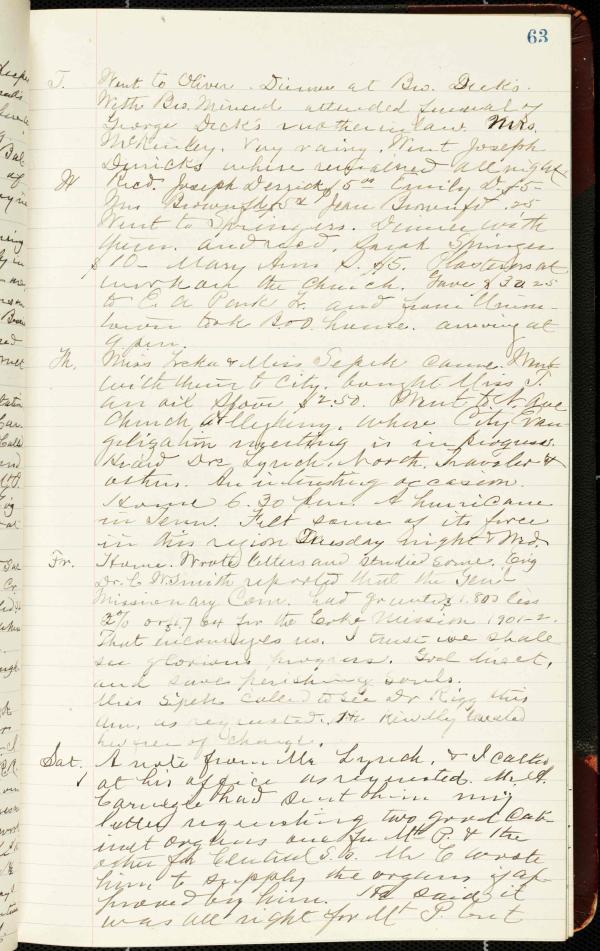 63
T. Went to Oliver. Dinner at Bro. Dick's.
With Bro. Minerd attended funeral of
George Dick's mother in law Mrs.
McKinley. Very rainy. Went Joseph
Derricks where remained all night
W Recd. Joseph Derrick $5 Emily D. $5-
Brown $5 Jean Brown .25
Went to Springers. Dinner with
them. and recd. Sarah Springer
$10- Mary Ann S. $5. Plasterers at
work on the church. Gave
to E. A. Penk Jr. and from Union-
town took B&O. home. arriving at
9 pm.
Th. Miss & Miss Sepek came. Went
with them to City. bought Miss T.
an oil stove $2.50. Went to N. Ave
Church, Allegheny, where City Evan-
gelization meeting is in progress.
Heard Drs Lynch, North, Traveler &
others. An interesting occasion.
Home 6.30 pm. A hurricane
in Tenn. Felt some of its force
in this region Tuesday night & Wed.
Fr. Home. Wrote letters and studied some. Eng
Dr. C. W. Smith reported that the Genl
Missionary Com. had granted $1.800 less
2% or for the Coke Mission 1901-2.
That encourages us. I trust we shall
see glorious progress. God direct,
and save perishing souls.
Miss Sepek called to see Dr Rigg this
am, as requested. He kindly treated
her free of charge.
Sat. A note from Mr Lynch, & I called
at his office as requested. Mr. A.
Carnegie had sent him my
letter requesting two good cab-
inet organs one for Mt. P. & the
other for Central S.S. Mr C wrote
him, to supply the organs if ap-
proved by him. He said it
was all right for Mt P. but